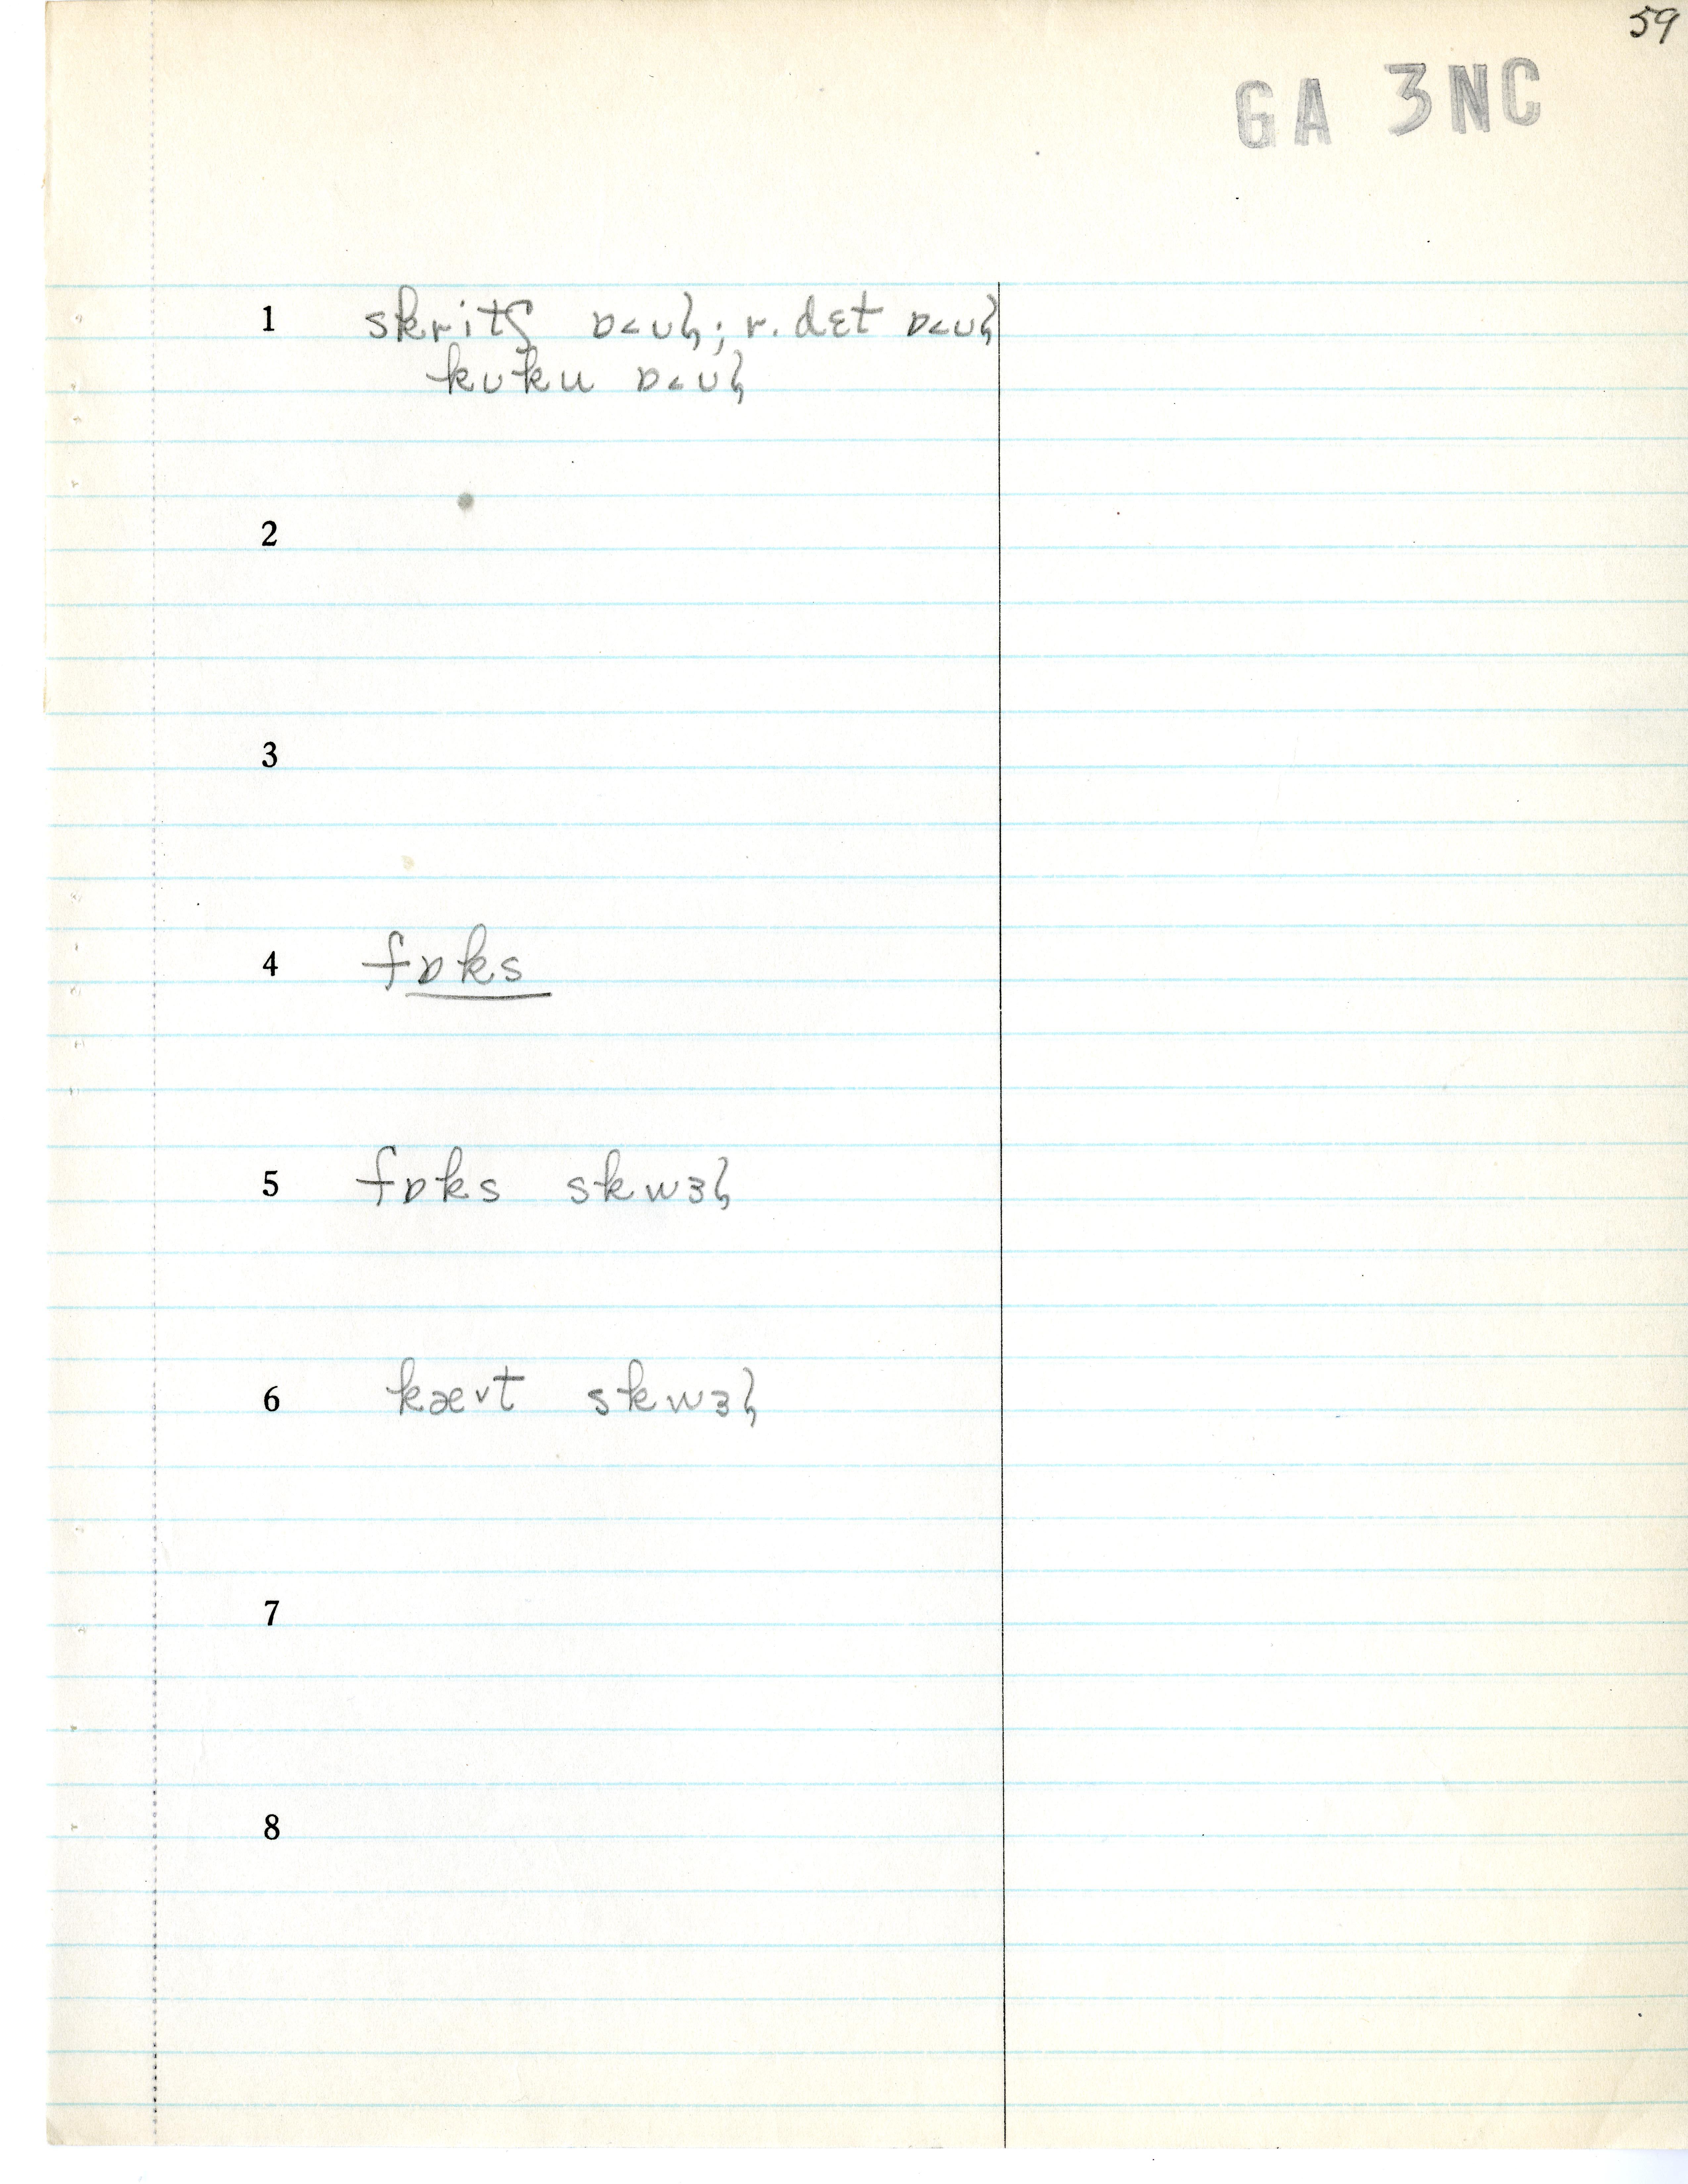 59
GA 3NC
1 skritʃ ɒ<ʊɫ; r. dɛt ɒ<ʊɫ
kʊku ɒ<ʊɫ
2
3
4 fɒks
5 fɒks skwɜɫ
6 kævt skwɜɫ
7
8